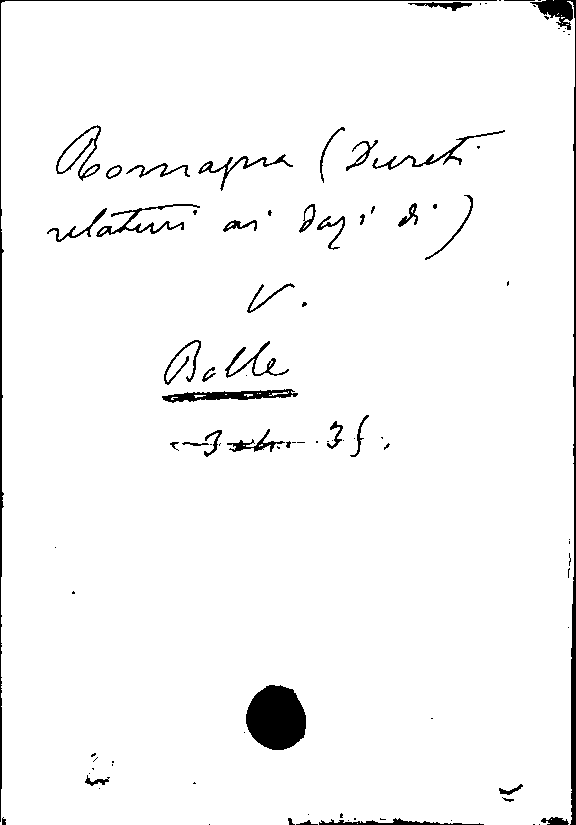 Romagna (Decreti
relativi ai dazi di)
V.
Bolle
3 35.